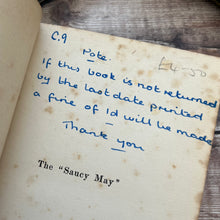 C.9
Note.
£4-50
If this book is not returned
by the last date printed
a fine of 1d will be made
Thank you
The "Saucy May"